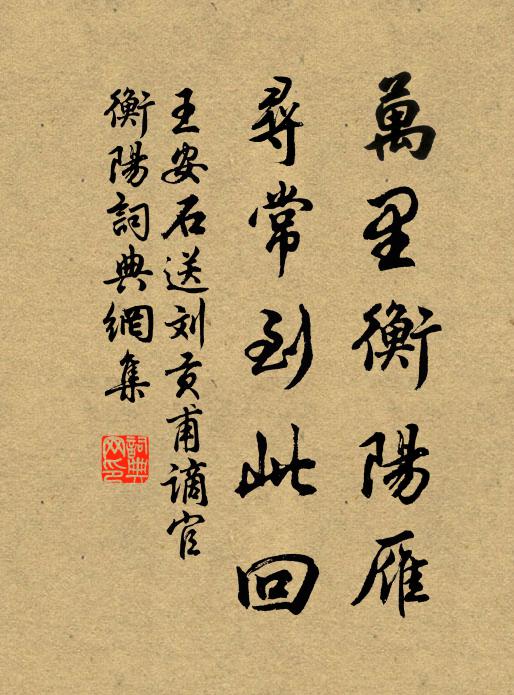 萬里衡陽雁
尋常到此回
王安石送刘贡甫谪官
衡陽詞典網集
詞典
网印